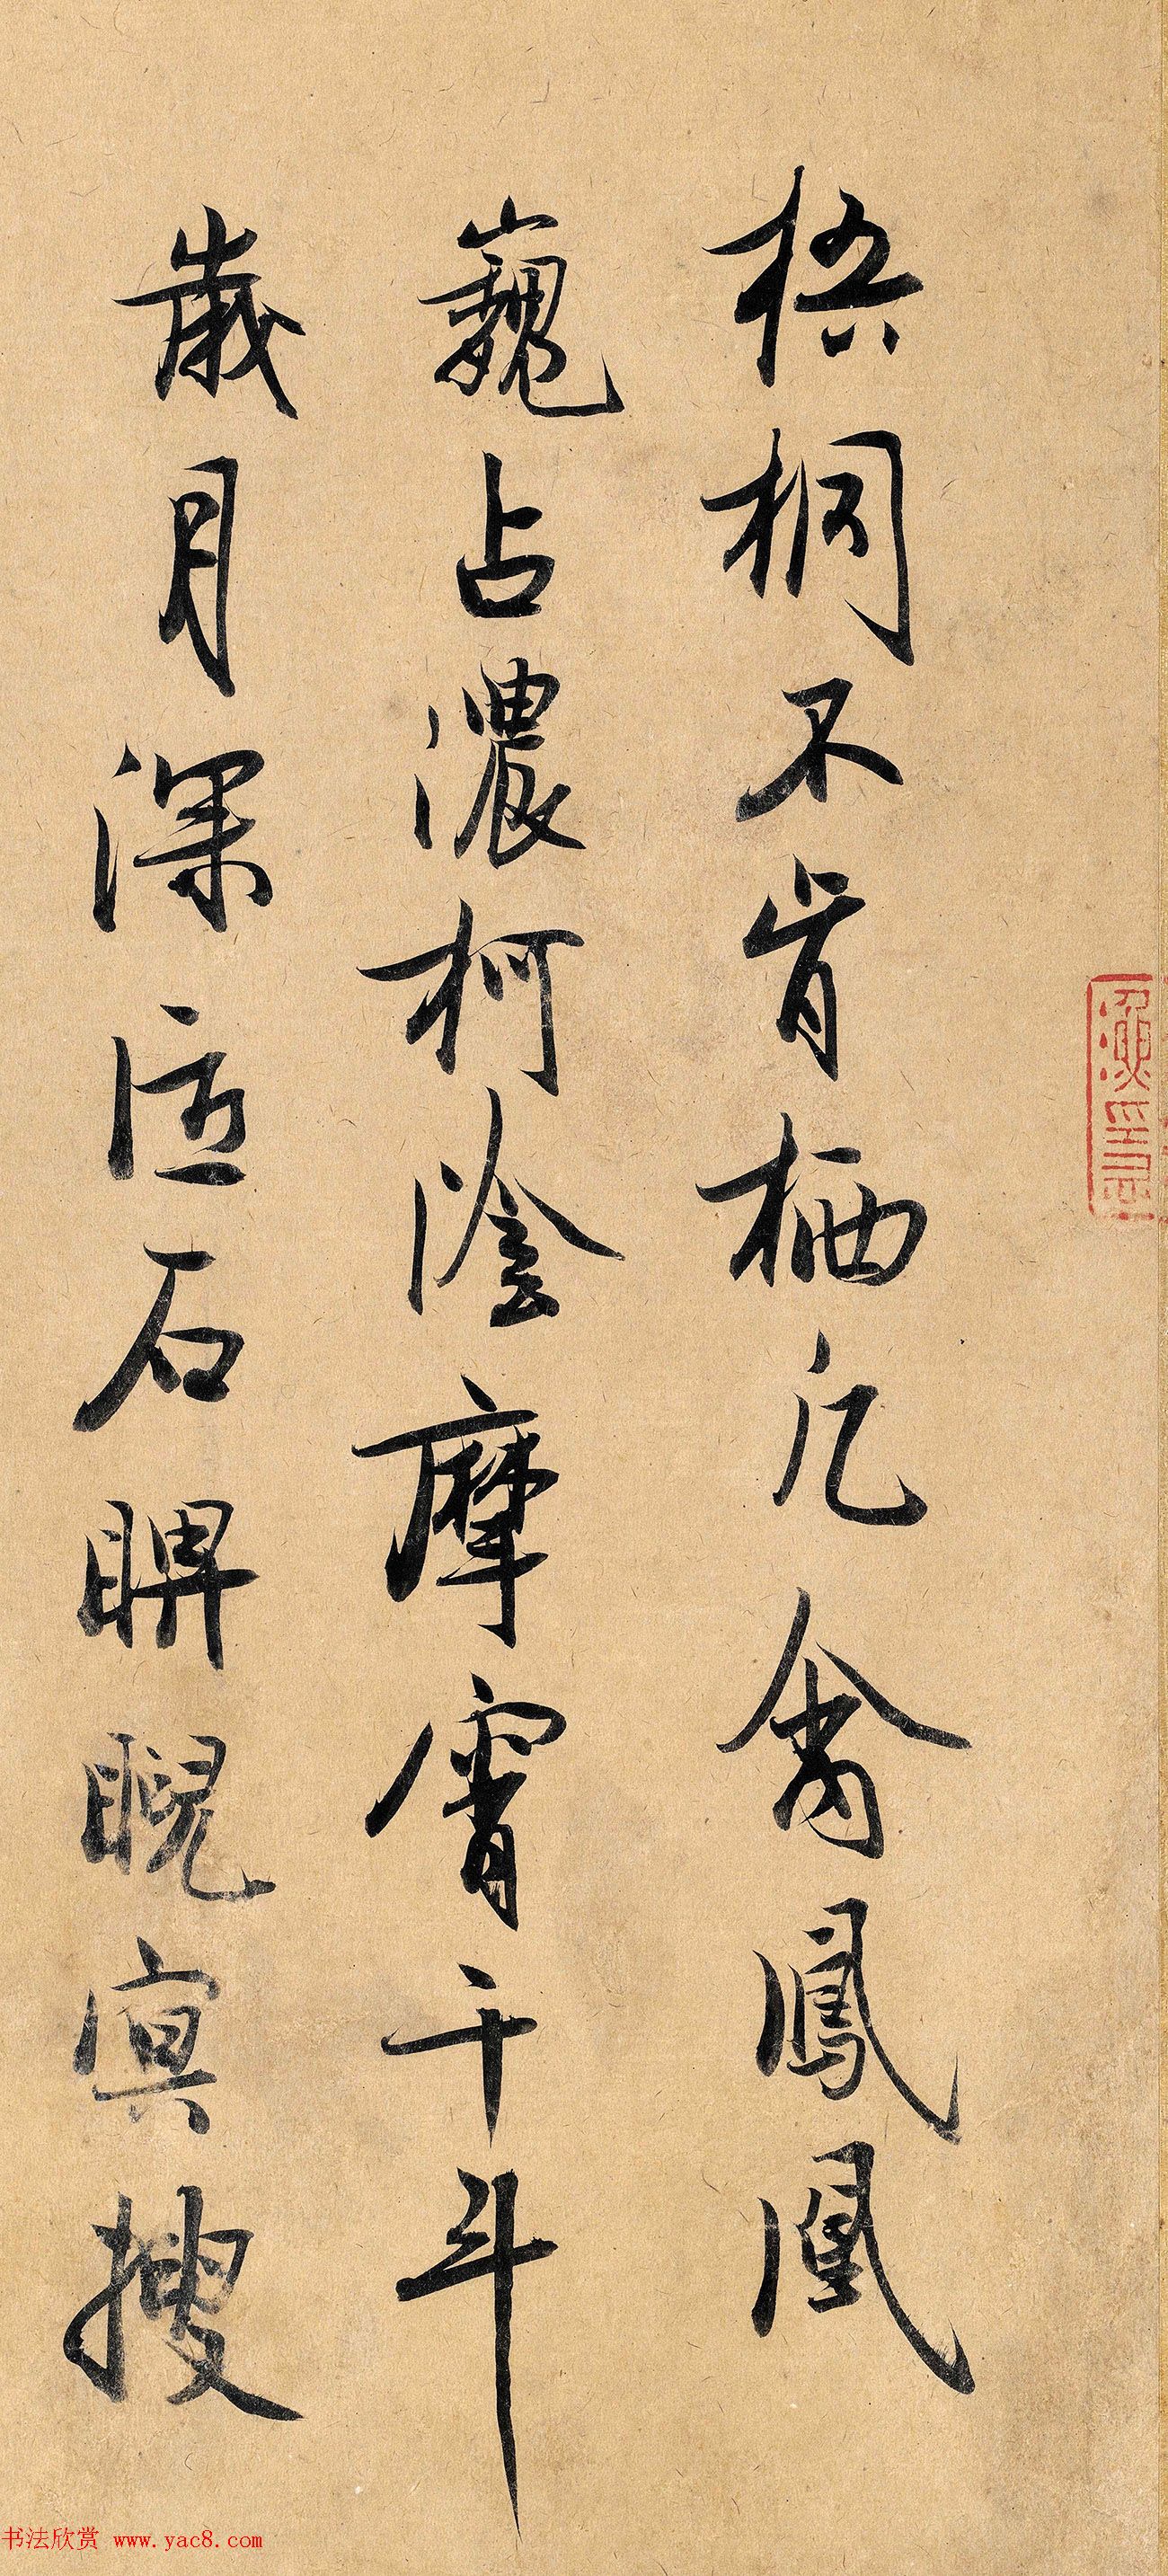 梧桐不肯栖凡禽鳳凰
巍占濃柯陰摩霄干斗
歲月深匠石睥睨冥搜
书法欣赏 www.yac8.com